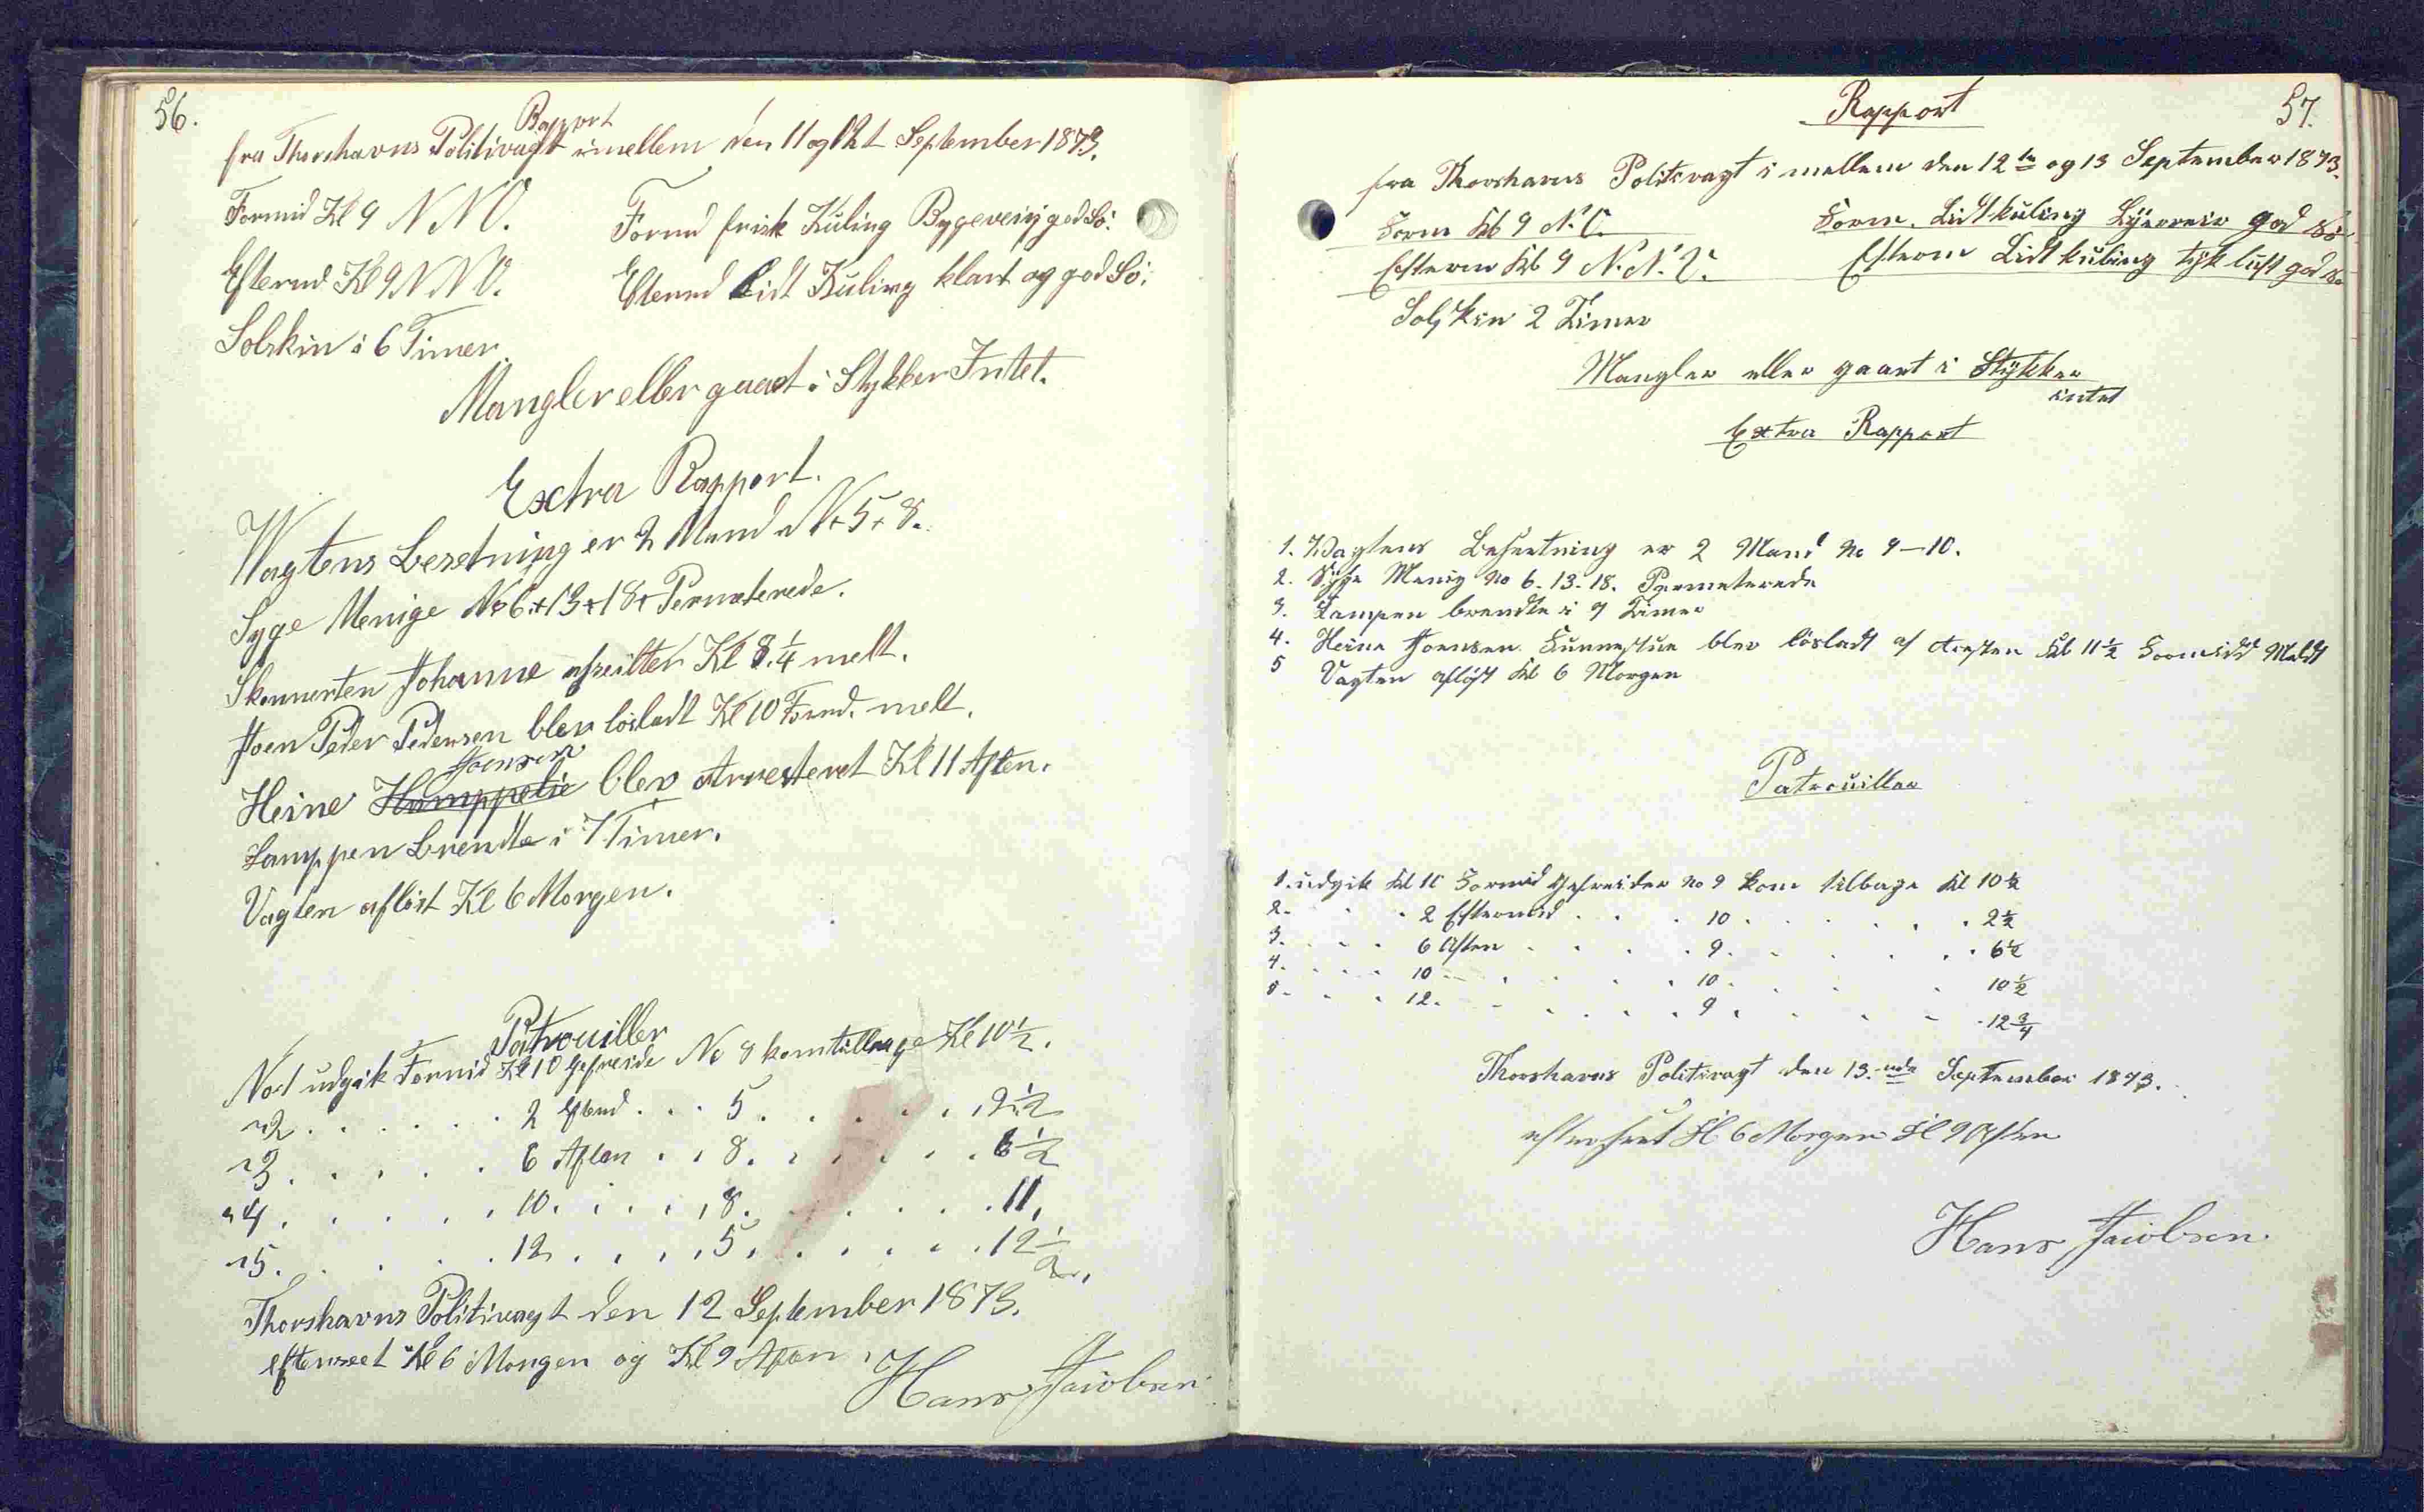 56.
Rapport
fra Thorshavns Politivagt imellem den 11 og 12t September 1873.
Formid Kl 9 N N O.
Formd frisk Kuling Bygeveirj god Sö.
Efternd Kl 9 N N O.
Efternd Lidt Kuling klart og god Sö.
Solskin i 6 Timer.
Mangler eller gaaet i Stykker Intet.
Extra Rapport.
Wagtens Besetning er 2 Mand N 5 + 8.
Syge Menige No 6 + 13 + 18 + Permeterede.
Skonnerten Johanne afseilter Kl 8 1/4 melt.
Joen Peder Pedersen blev lösladt Kl 10 Formd. melt.
Joensen
Heine Hamppetie blev Arresteret Kl 11 Aften.
Lamppen brendte i 7 Timer.
Vagten aflöst Kl 6 Morgen.
Patrouiller
No 1 udgik Formid Kl 10 Gefreide No 8 kom tilbage Kl 10 1/2.
" 2 . . . . . 2 Eftmd . . . 5 . . . . . 2 1/2
" 3 . . . . . 6 Aften . . 8 . . . . . . 6 1/2
" 4 . . . . . 10 . . . . 8 . . . . . . 11.
" 5 . . . . . 12 . . . . 5 . . . . . . 12 1/2.
Thorshavns Politivagt den 12 September 1873.
efterseet Kl 6 Morgen og Kl 9 Aften.
Hans Jacobsen
57.
Rapport
fra Thorshavns Politivagt i mellem den 12te og 13 September 1873.
Form Kl 9 N. O.
Form. Lidt kuling god Sö
Efterm Kl 9 N. N. V.
Efterm Lidt kuling tyk luft god Sö
Solskin 2 Timer
Mangler eller gaaet i Stykker
intet
Extra Rapport
1. Vagtens Besætning er 2 Mand No 9 — 10.
2. Syge Menig No 6. 13. 18. Permeterede
3. Lampen brendte i 9 Timer
4. Heine Joensen blev lösladt af Aresten Kl 11 1/2 Formidd Meldt
5 Vagten aflöst Kl 6 Morgen
Patrouiller
1. udgik Kl 10 Formid Gefreider No 9 kom tilbage Kl 10 1/2
2. . . . 2 Eftermid . . . 10 . . . . . 2 1/2
3. . . . 6 Aften . . . . 9 . . . . . 6 1/2
4. . . . 10 . . . . . 10 . . . . 10 1/2
5. . . . 12 . . . . . 9 . . . . 12 3/4
Thorshavns Politivagt den 13.nde September 1873.
efterseet Kl 6 Morgen Kl 9 Aften
Hans Jacobsen.